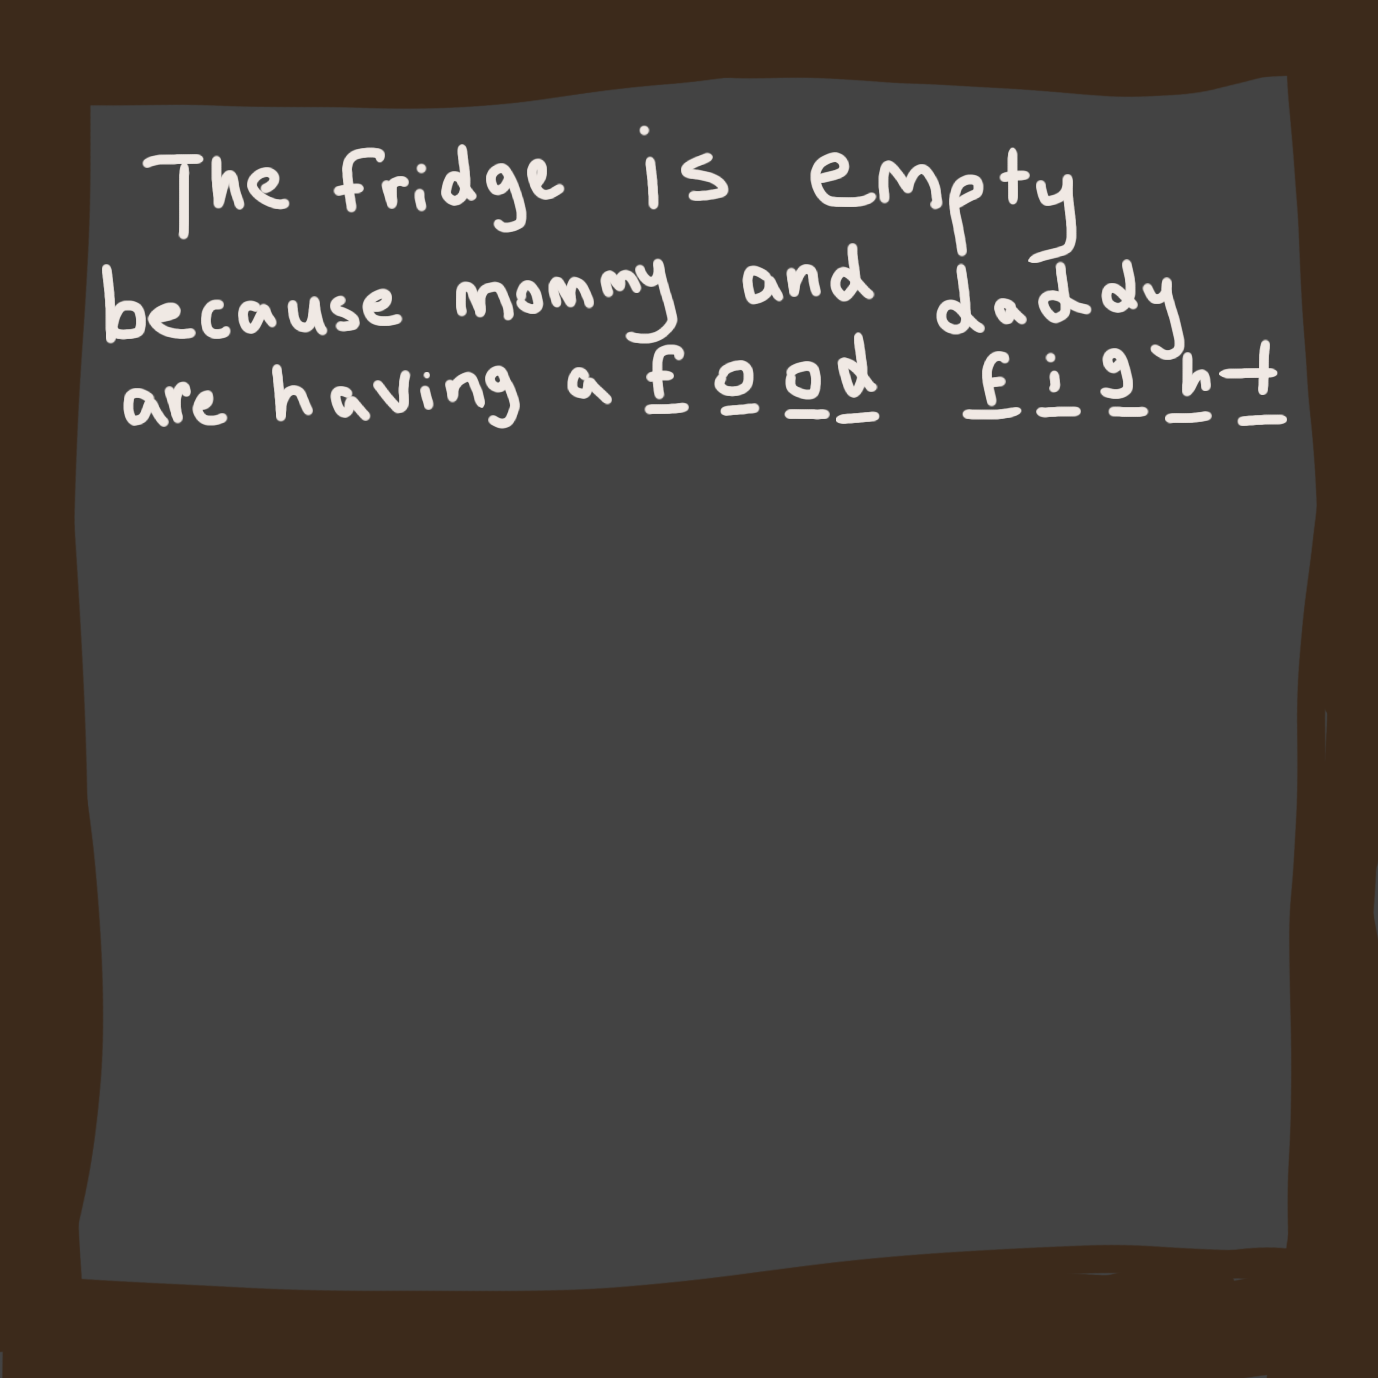 The fridge is empty
because mommy and daddy
are having a food fight